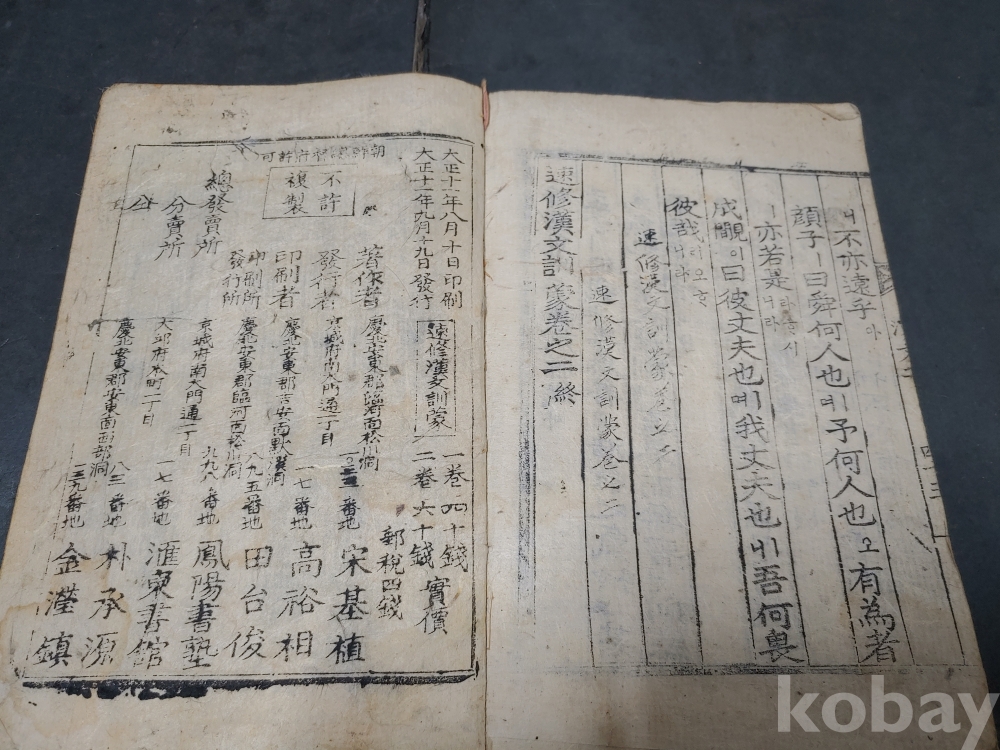 ㅣ不亦遠乎아
顔子ㅣ曰舜何人也ㅣ며予何人也오有為者
ㅣ亦若是니라
成覸이曰彼丈夫也ㅣ며我丈夫也ㅣ니吾何畏
彼哉리오
速修漢文訓蒙卷之二終
速修漢文訓蒙卷之二
大正十一年八月十日印刷
大正十一年九月十九日發行
速修漢文訓蒙
一卷四十錢
二卷六十錢
實價
郵稅四錢
朝鮮總督府許可
不許
複製
著作者 慶北安東郡臨河面松川洞 番地 宋基植
發行者 京城府南大門通一丁目 一七番地 高裕相
印刷者 慶北安東郡吉安面默溪洞 田台俊
印刷所
發行所 慶北安東郡臨河面松川洞 八九五番地 鳳陽書塾
總發賣所 京城府南大門通一丁目 一七番地 滙東書館
分賣所 大邱府本町二丁目 八三番地 朴承源
仝 慶北安東郡安東面西部洞 三九番地 金瀅鎮
kobay